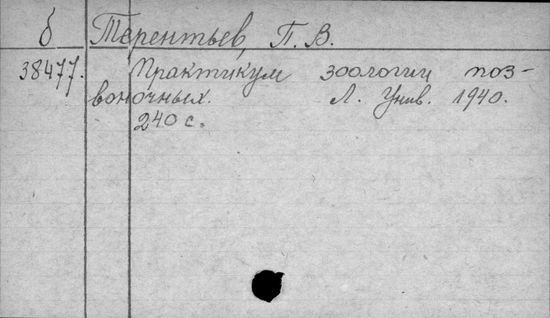 б Терентьев, П. В.
38477. Практикум зоологии поз-
воночных. Л. Унив. 1940.
240 с.